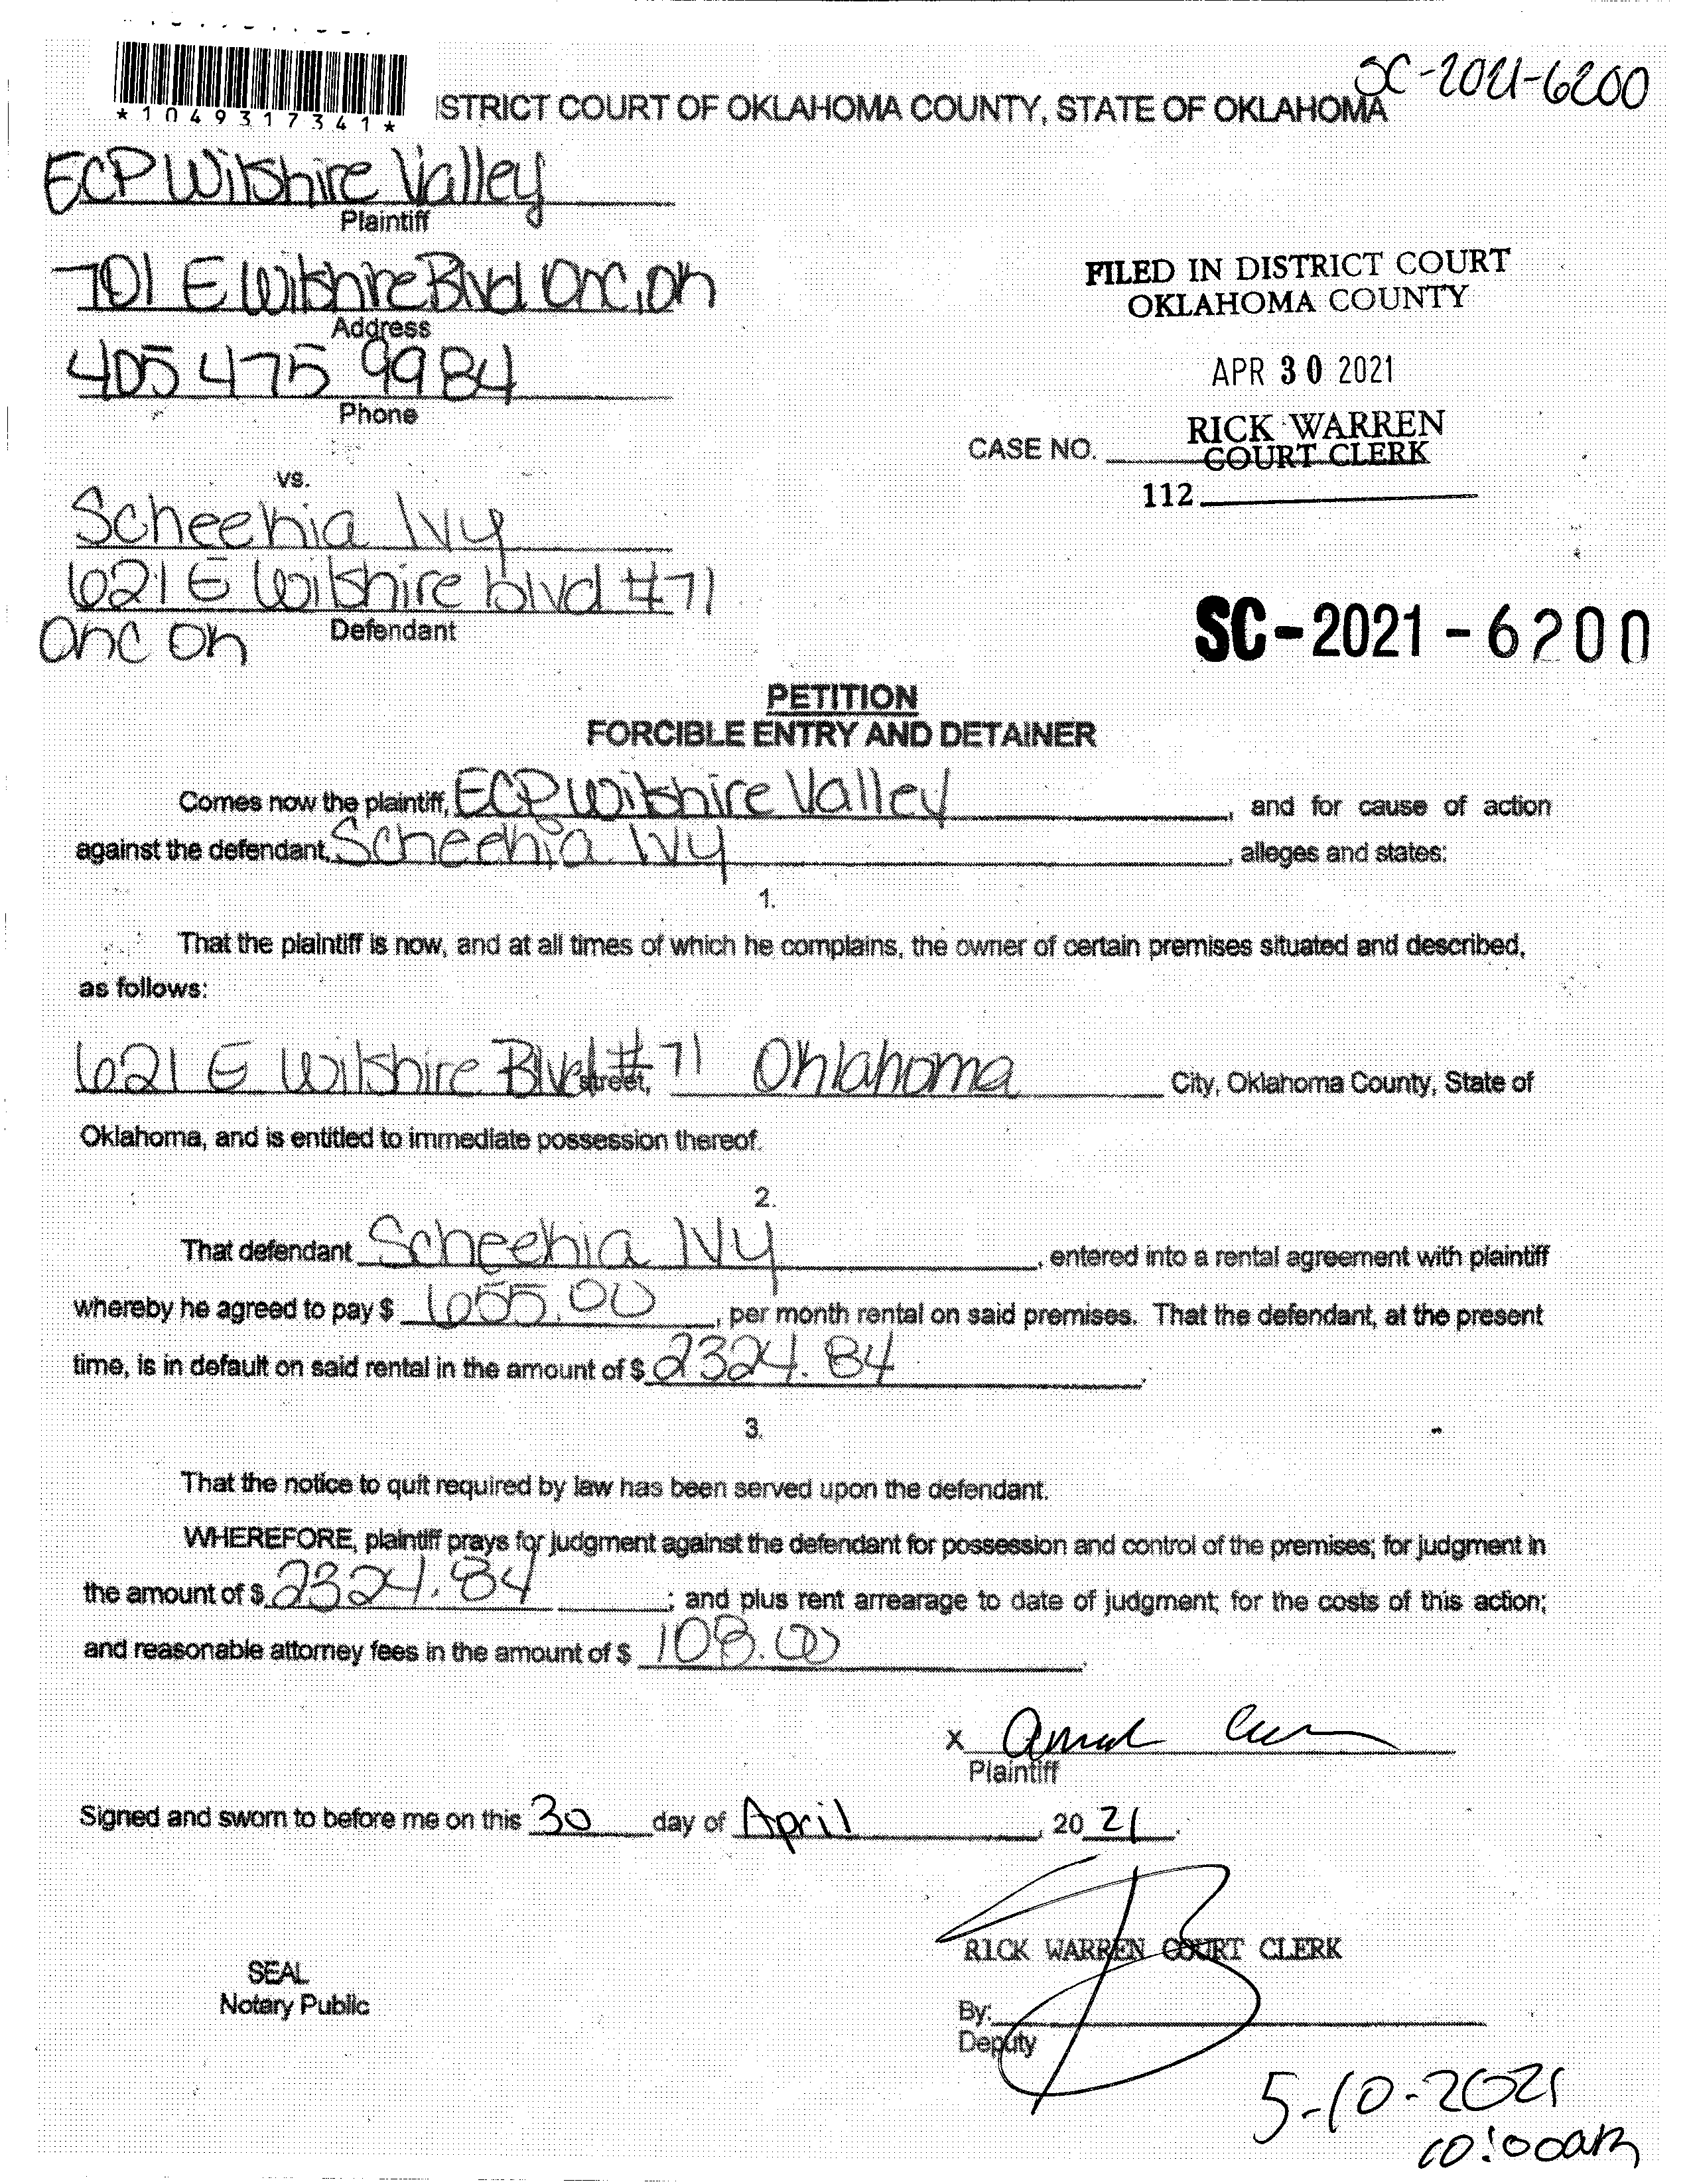 SC-2021-6200
*1049317341*
ISTRICT COURT OF OKLAHOMA COUNTY, STATE OF OKLAHOMA
ECP Wilshire Valley
Plaintiff
701 E Wilshire Blvd OKC, OK
Address
405 475 9984
Phone
FILED IN DISTRICT COURT
OKLAHOMA COUNTY
APR 30 2021
RICK WARREN
COURT CLERK
CASE NO.
112
vs.
Scheekia Ivy
621 E Wilshire blvd #71
OKC OK
Defendant
SC-2021-6200
PETITION
FORCIBLE ENTRY AND DETAINER
Comes now the plaintiff, ECP Wilshire Valley, and for cause of action
against the defendant, Scheekia Ivy, alleges and states:
1.
That the plaintiff is now, and at all times of which he complains, the owner of certain premises situated and described,
as follows:
621 E Wilshire Blvd #71 street, Oklahoma City, Oklahoma County, State of
Oklahoma, and is entitled to immediate possession thereof.
2.
That defendant Scheekia Ivy, entered into a rental agreement with plaintiff
whereby he agreed to pay $ 655.00, per month rental on said premises. That the defendant, at the present
time, is in default on said rental in the amount of $ 2324.84.
3.
That the notice to quit required by law has been served upon the defendant.
WHEREFORE, plaintiff prays for judgment against the defendant for possession and control of the premises; for judgment in
the amount of $ 2324.84; and plus rent arrearage to date of judgment; for the costs of this action;
and reasonable attorney fees in the amount of $ 108.00.
X
Plaintiff
Signed and sworn to before me on this 30 day of April, 20 21.
RICK WARREN COURT CLERK
SEAL
Notary Public
By:
Deputy
5-10-2021
10:00am